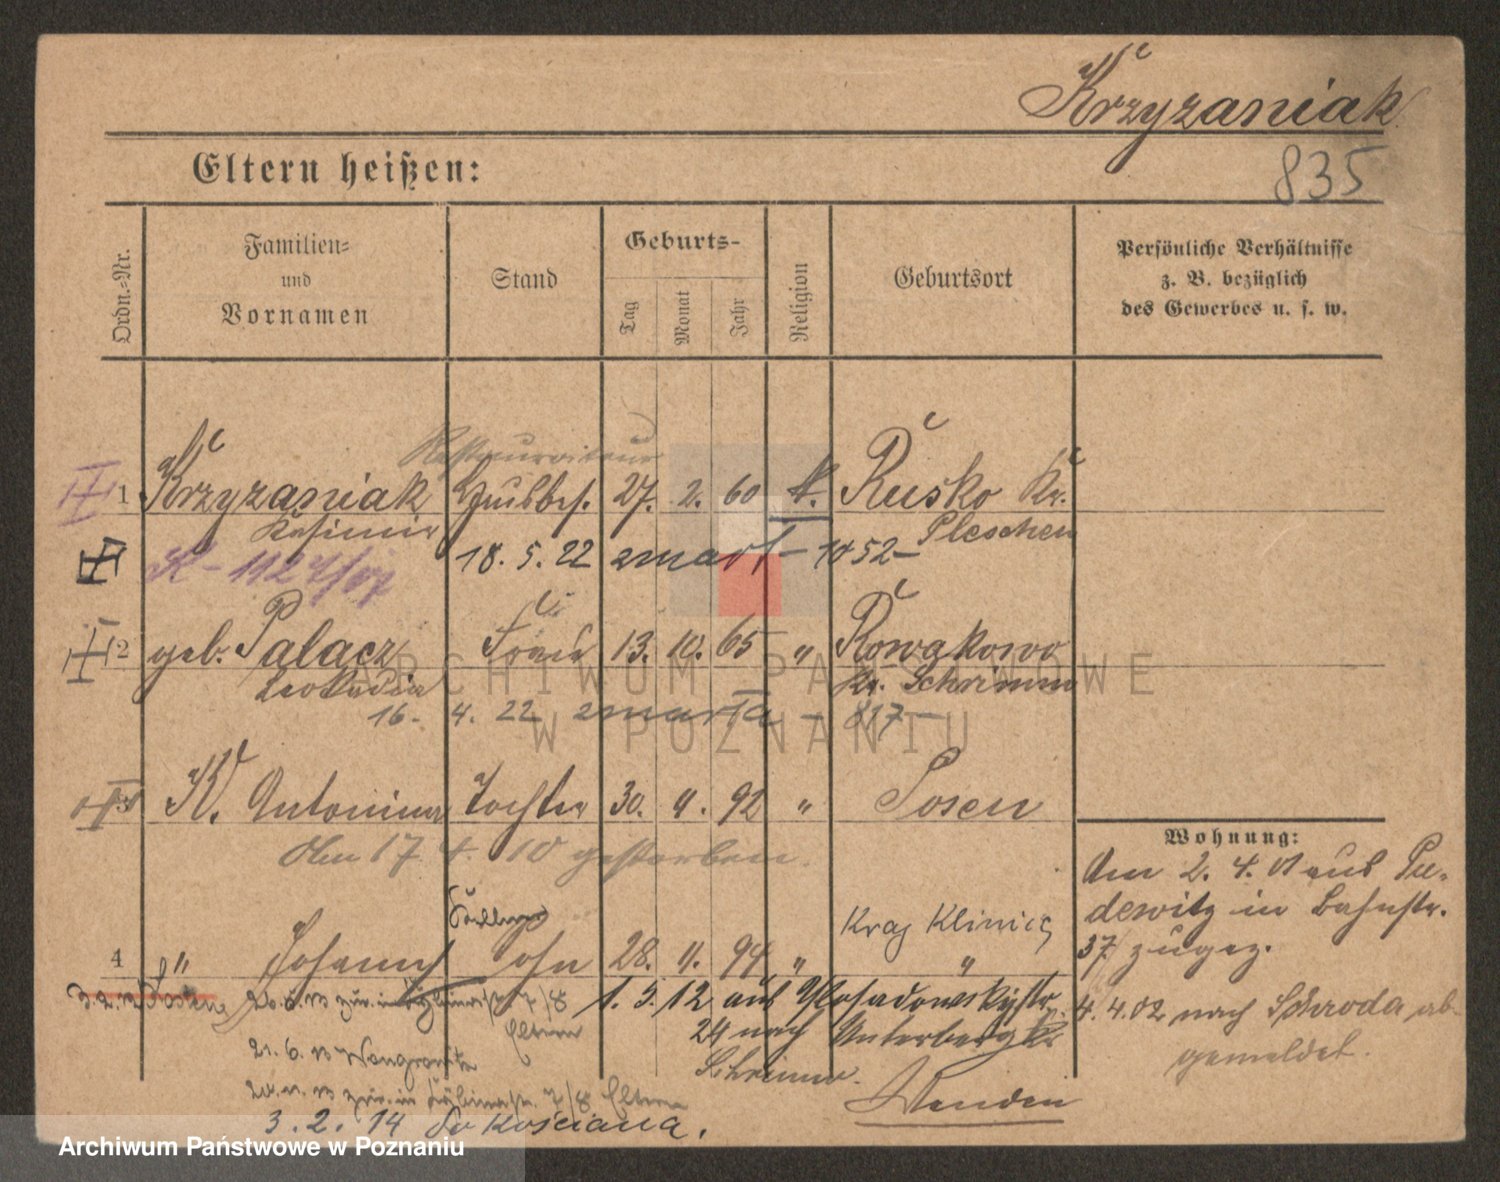 Krzyzaniak
835
Eltern heißen:
Ordn.=Nr.
Familien=
und
Vornamen
Stand
Geburts-
Tag
Monat
Jahr
Religion
Geburtsort
Persönliche Verhältnisse
z. B. bezüglich
des Gewerbes u. s. w.
Restaurateur
1 Krzyzaniak 27. 2. 60 k. Rusko Kr.
Kasimir Pleschen
18. 5. 22 zmarł - 1052-
2 geb. Palacz Frau 13. 10. 65 " Rowakowo
Leokadia Kr. Schrimm
16. 4. 22 zmarła - 817-
3 K. Antonina Tochter 30. 4. 92 " Posen
Am 17. 4. 10 gestorben.
Wohnung:
Am 2. 4. 01 aus Pu-
dewitz in Bahnstr.
37 zugez.
4. 4. 02 nach Schroda ab-
gemeldet.
4 " Johann Sohn 28. 4. 94 " "
1. 5. 12 aus
24 nach Unterberg Kr.
Schrimm.
Eltern
21. 6. 13 Wongrowitz
7/8 Eltern
3. 2. 14 do Kościana.
ARCHIWUM PAŃSTWOWE
W POZNANIU
Archiwum Państwowe w Poznaniu